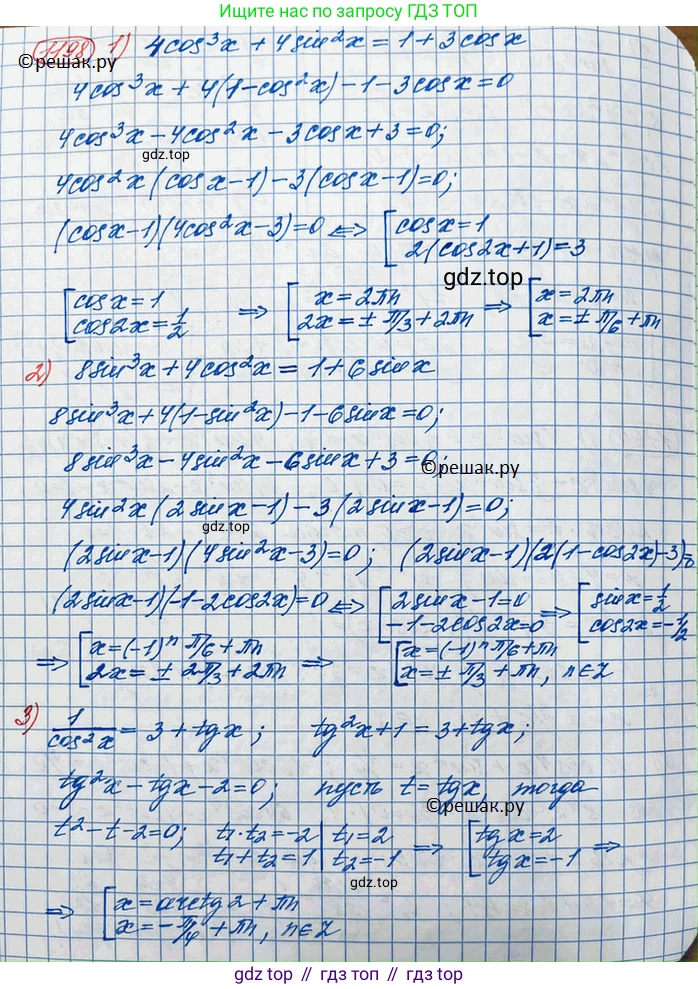 Больше по запросу ГДЗ ТОП
1198 1) 4cos³x + 4sin²x = 1 + 3cosx
©решак.ру
4cos³x + 4(1-cos²x) - 1 - 3cosx = 0
4cos³x - 4cos²x - 3cosx + 3 = 0;
gdz.top
4cos²x(cosx-1) - 3(cosx-1) = 0;
(cosx-1)(4cos²x-3) = 0 <=> [cosx = 1
2(cos2x+1) = 3
gdz.top
[cosx = 1 => [x = 2πn => [x = 2πn
cos2x = 1/2 2x = ± π/3 + 2πn x = ± π/6 + πn
2) 8sin³x + 4cos²x = 1 + 6sinx
8sin³x + 4(1-sin²x) - 1 - 6sinx = 0;
8sin³x - 4sin²x - 6sinx + 3 = 0;
©решак.ру
4sin²x(2sinx-1) - 3(2sinx-1) = 0;
gdz.top
(2sinx-1)(4sin²x-3) = 0; (2sinx-1)(2(1-cos2x)-3) = 0
(2sinx-1)(-1-2cos2x) = 0 <=> [2sinx-1 = 0 => [sinx = 1/2
-1-2cos2x = 0 cos2x = -1/2
=> [x = (-1)ⁿ π/6 + πn => [x = (-1)ⁿ π/6 + πn
2x = ± 2π/3 + 2πn x = ± π/3 + πn, n∈Z
3) 1/cos²x = 3 + tgx; tg²x + 1 = 3 + tgx;
tg²x - tgx - 2 = 0; пусть t = tgx, тогда
©решак.ру
t² - t - 2 = 0; t₁·t₂ = -2 | t₁ = 2 => [tgx = 2 =>
t₁ + t₂ = 1 | t₂ = -1 tgx = -1
gdz.top
=> [x = arctg2 + πn
x = -π/4 + πn, n∈Z
gdz top // гдз топ // gdz.top